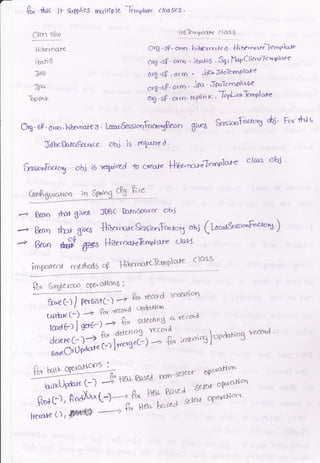 For this it supplies multiple Template classes.
ORM slw its Template class
Hibernate org.sf.orm.hibernate3.HibernateTemplate
ibatis org.sf.orm.ibatis.SqlMapClientTemplate
Jdo org.sf.orm.jdo.JdoTemplate
Jpa org.sf.orm.jpa.JpaTemplate
Toplink org.sf.orm.toplink.TopLinkTemplate
org.sf.orm.hibernate3.LocalSessionFactoryBean gives SessionFactory obj. For this
JdbcDataSource obj is required.
SessionFactory obj is required to create HibernateTemplate class obj
Configuration in Spring cfg file
→ Bean that gives JDBC DataSource obj
→ Bean that gives Hibernate SessionFactory obj (LocalSessionFactory)
→ Bean of HibernateTemplate class
important methods of HibernateTemplate class
For Singlerow operations:
Save(-) / persist(-) → for record insertion
update(-) → for record updation
load(-) / get(-) → for selecting a record
delete(-) → for deleting record
saveOrUpdate(-) / merge(-) → for inserting / updating record.
For bulk operations:
bulkUpdate(-) → HQL Based non-select operation
find(-), findXxx(-) → for HQL Based select operation
iterate(), → for HQL based select operation.